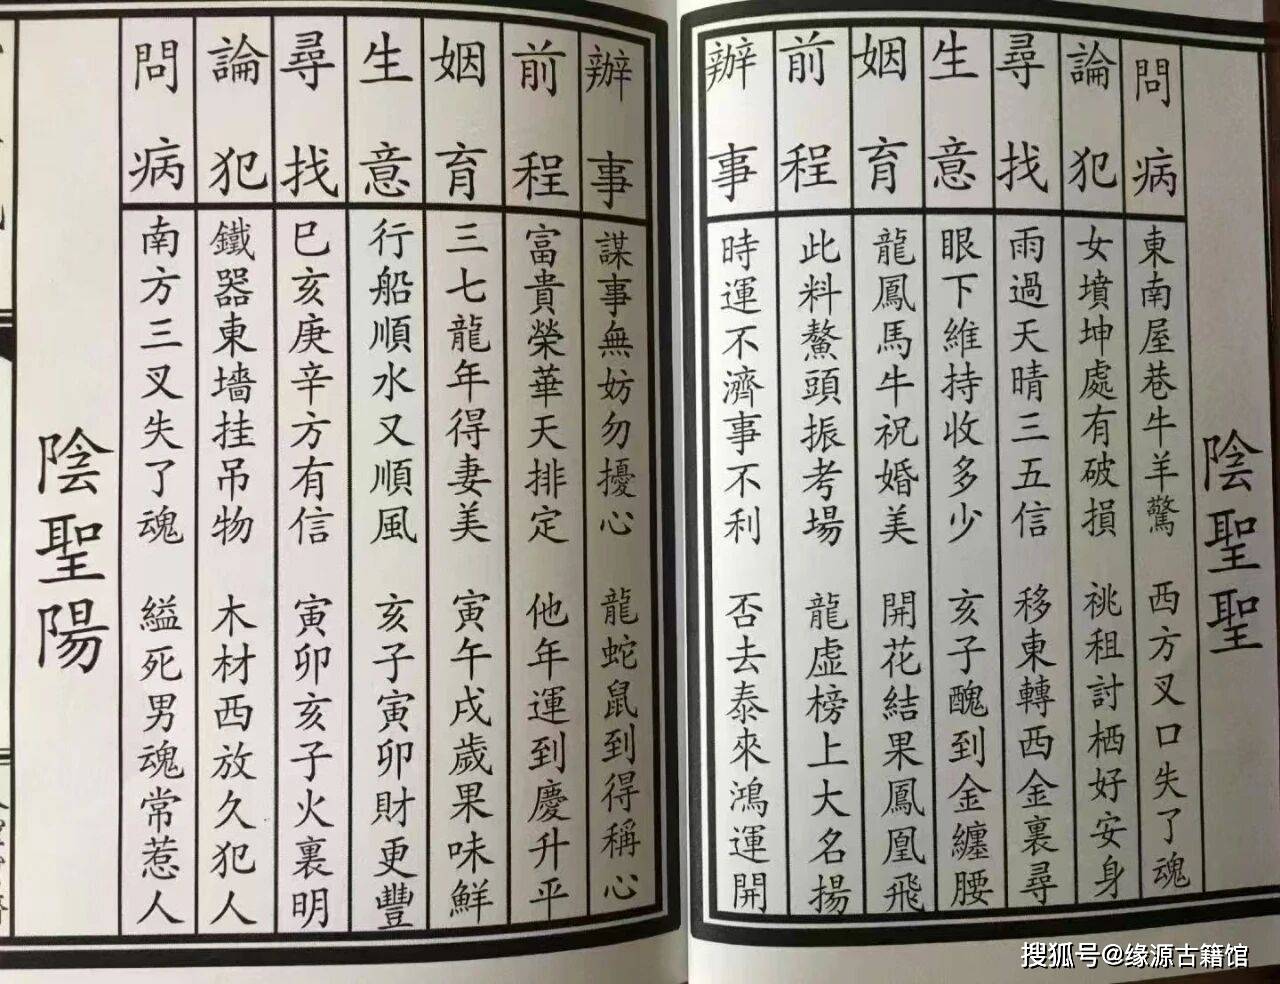 陰聖聖
問病 東南屋巷牛羊驚 西方叉口失了魂
論犯 女墳坤處有破損 祧租討栖好安身
尋找 雨過天晴三五信 移東轉西金裏尋
生意 眼下維持收多少 亥子醜到金纏腰
姻育 龍鳳馬牛祝婚美 開花結果鳳凰飛
前程 此料鰲頭振考場 龍虛榜上大名揚
辦事 時運不濟事不利 否去泰來鴻運開
辦事 謀事無妨勿擾心 龍蛇鼠到得稱心
前程 富貴榮華天排定 他年運到慶升平
姻育 三七龍年得妻美 寅午戌歲果味鮮
生意 行船順水又順風 亥子寅卯財更豐
尋找 巳亥庚辛方有信 寅卯亥子火裏明
論犯 鐵器東墻挂吊物 木材西放久犯人
問病 南方三叉失了魂 縊死男魂常惹人
陰聖陽
搜狐号@缘源古籍馆